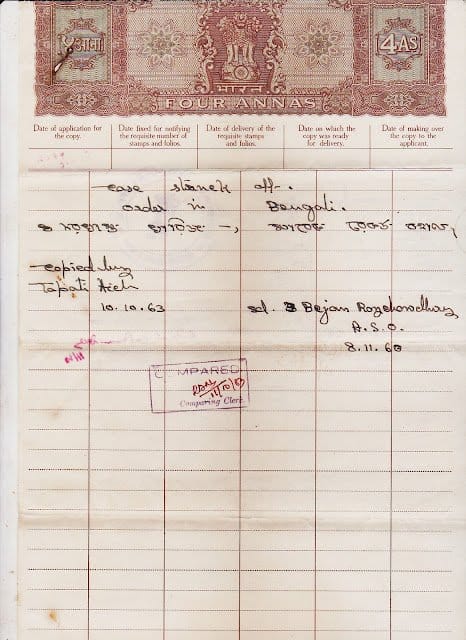 ४ आना
4 AS
भारत
FOUR ANNAS
Date of application for the copy.
Date fixed for notifying the requisite number of stamps and folios.
Date of delivery of the requisite stamps and folios.
Date on which the copy was ready for delivery.
Date of making over the copy to the applicant.
case struck off.
order in Bengali.
Copied by
Tapati Aich
10.10.63
sd. Bejan Roychowdhury
A.S.O.
8.11.60
COMPARED
Comparing Clerk